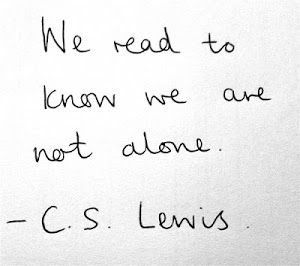 We read to
know we are
not alone.
- C.S. Lewis.